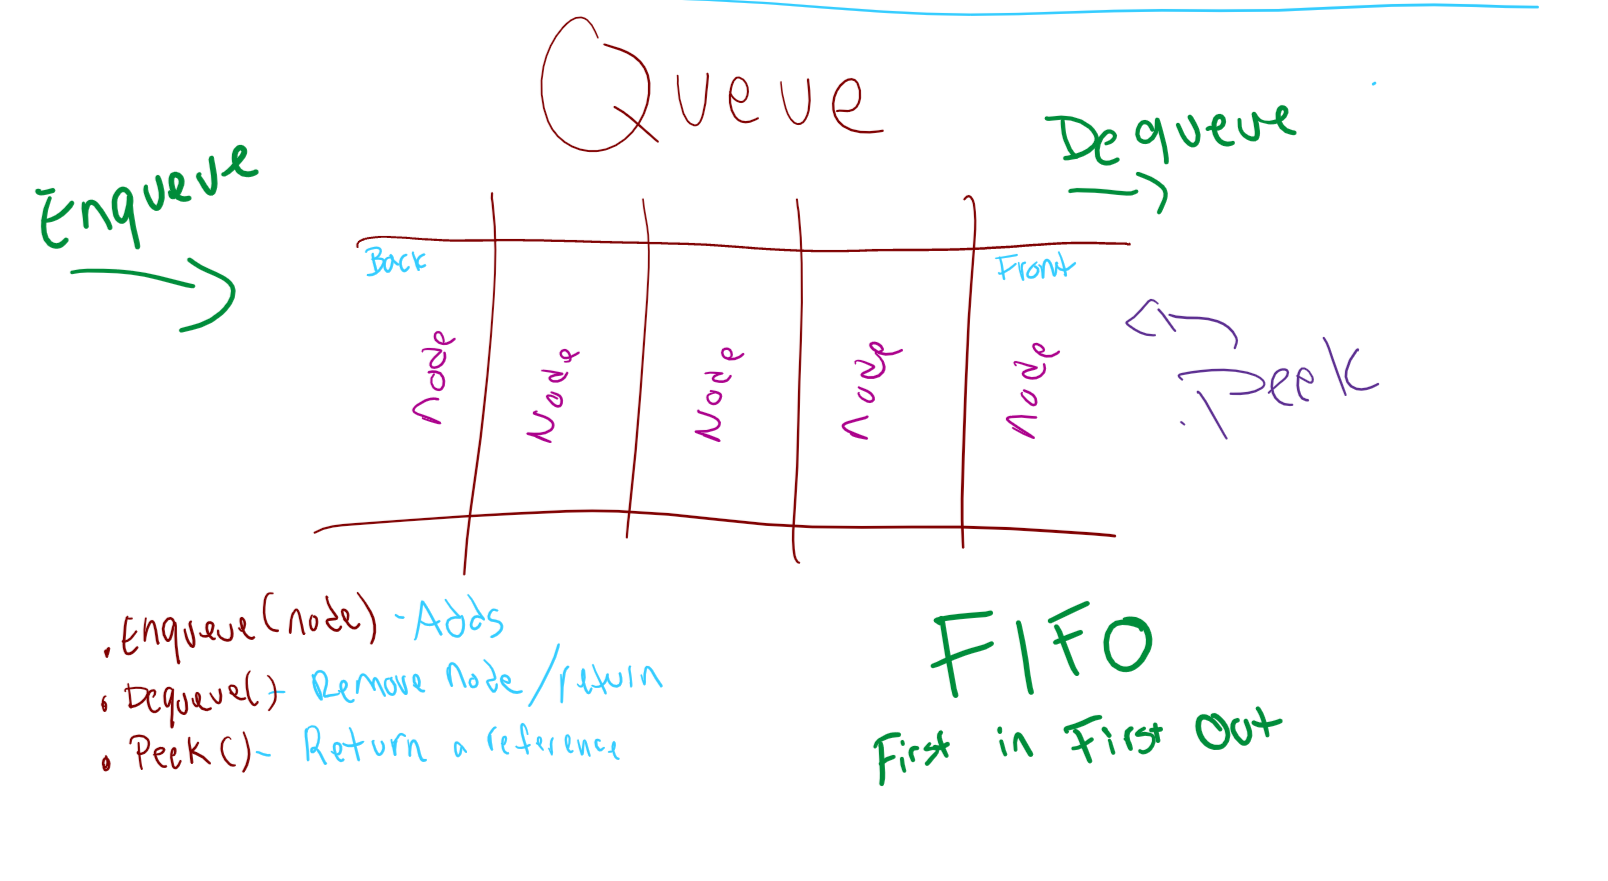 Queue
Enqueue
Dequeue
Back
Front
Node
Node
Node
Node
Node
.Peek
. Enqueue(node) - Adds
• Dequeue() - Remove Node/return
• Peek() - Return a reference
FIFO
First in First Out